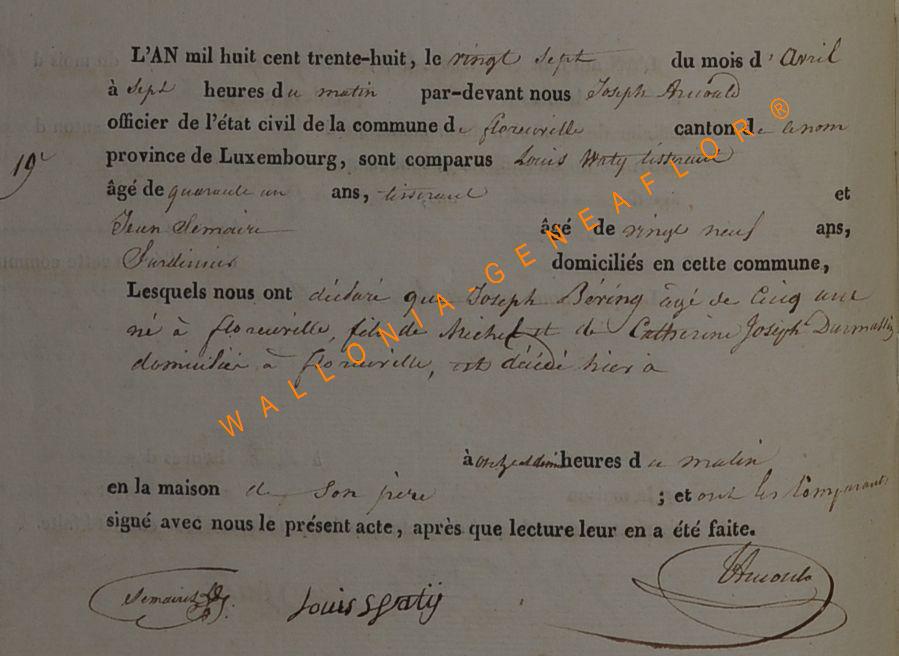 L'AN mil huit cent trente-huit, le vingt sept du mois d'avril
à sept heures du matin par-devant nous Joseph Arnould
officier de l'état civil de la commune de florenville canton de ce nom
19e province de Luxembourg, sont comparus Louis Waty tisserand
âgé de quarante un ans, tisserand et
Jean Semaire âgé de vingt neuf ans,
Jardinier domiciliés en cette commune,
Lesquels nous ont déclaré que Joseph Béring âgé de Cinq ans
né à florenville, fils de Michel et de Catherine Joseph
domiciliés à florenville, est décédé hier à
à onze et demi heures du matin
en la maison de son père ; et ont les Comparants
signé avec nous le présent acte, après que lecture leur en a été faite.
Louis Waty
Arnould
WALLONIA-GENEAFLOR®